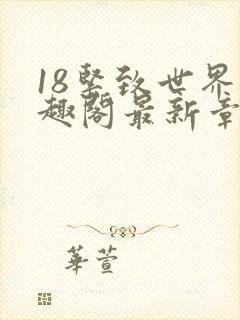 18坚致世界
趣阁最新章
華萱